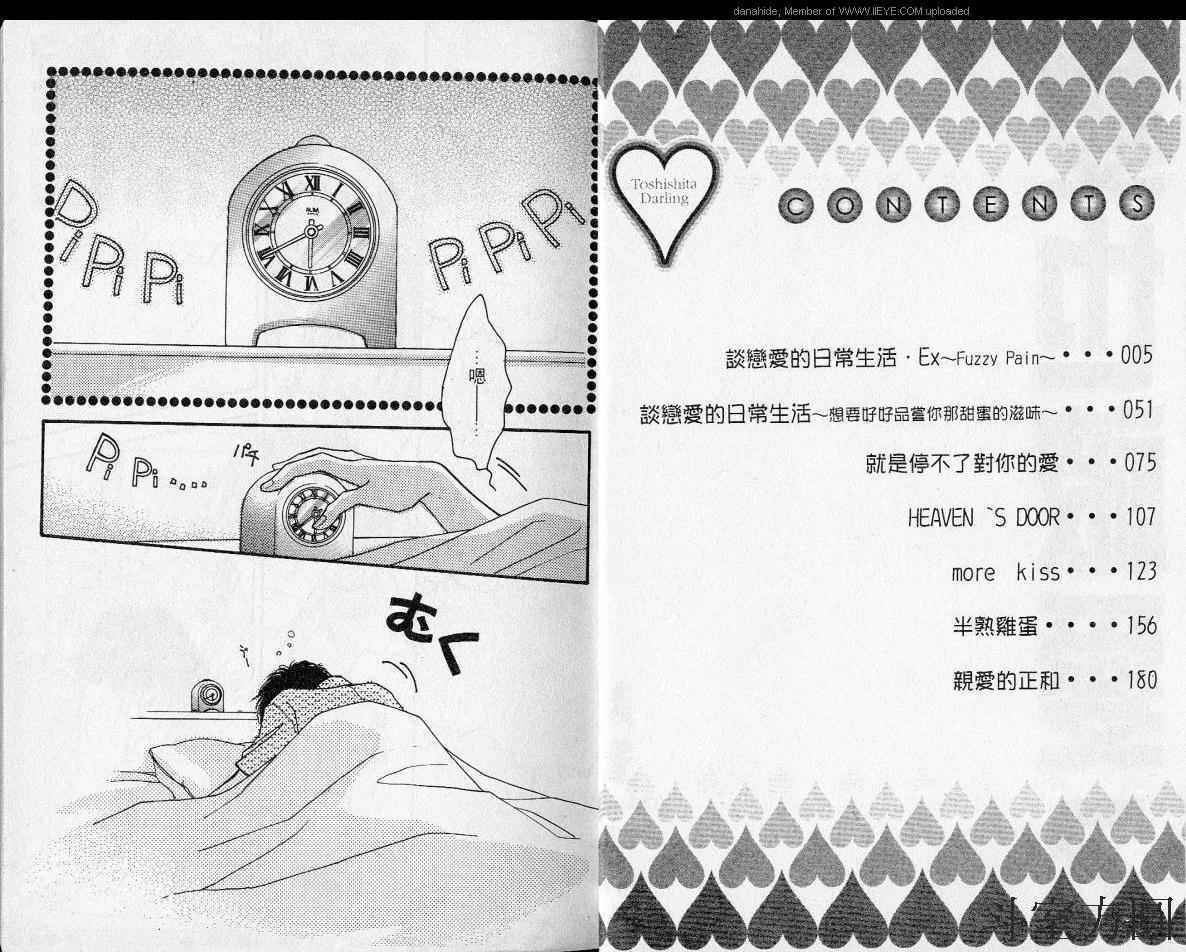 danahide, Member of WWW.IIEYE.COM uploaded
Toshishita
Darling
CONTENTS
談戀愛的日常生活・Ex～Fuzzy Pain～・・・005
談戀愛的日常生活～想要好好品嘗你那甜蜜的滋味～・・・051
就是停不了對你的愛・・・075
HEAVEN `S DOOR・・・107
more kiss・・・123
半熟雞蛋・・・・156
親愛的正和・・・180
Pi Pi Pi
Pi Pi Pi
……嗯——……
Pi Pi……
パチ
むく